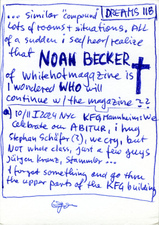 DREAMS IIB
... similar "compound"
lots of rooms + situations, ALL
of a sudden i see/hear/realize
that NOAH BECKER
of whitehotmagazine is
I wondered WHO will
continue w/the magazine ??
10/11 I 2024 NYC KFG Mannheim: We
celebrate our ABITUR, i hug
Stephan Schäfer (?), we cry, but
NOT whole class, just a few guys
Jürgen Kranz, Stammler ...
I forgot something and go thru
the upper parts of the KFG building